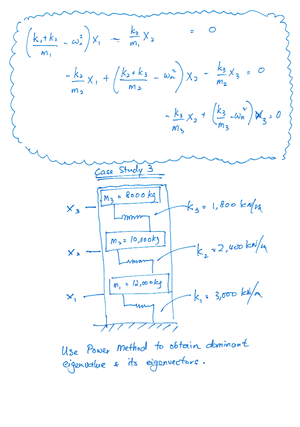 (k₁+k₂/m₁ - ωn²) X₁ - k₂/m₁ X₂ = 0
-k₂/m₂ X₁ + (k₂+k₃/m₂ - ωn²) X₂ - k₃/m₂ X₃ = 0
-k₃/m₃ X₂ + (k₃/m₃ - ωn²) X₃ = 0
Case Study 3
m₃ = 8000 kg
X₃
k₃ = 1,800 kN/m
m₂ = 10,000 kg
X₂
k₂ = 2,400 kN/m
m₁ = 12,000 kg
X₁
k₁ = 3,000 kN/m
Use Power Method to obtain dominant
eigenvalue & its eigenvectors.